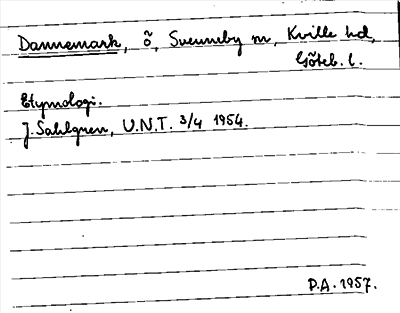 Dannemark, ö, Svenneby sn, Kville hd,
Göteb. l.
Etymologi.
J. Sahlgren, U.N.T. 3/4 1954.
P.A. 1957.